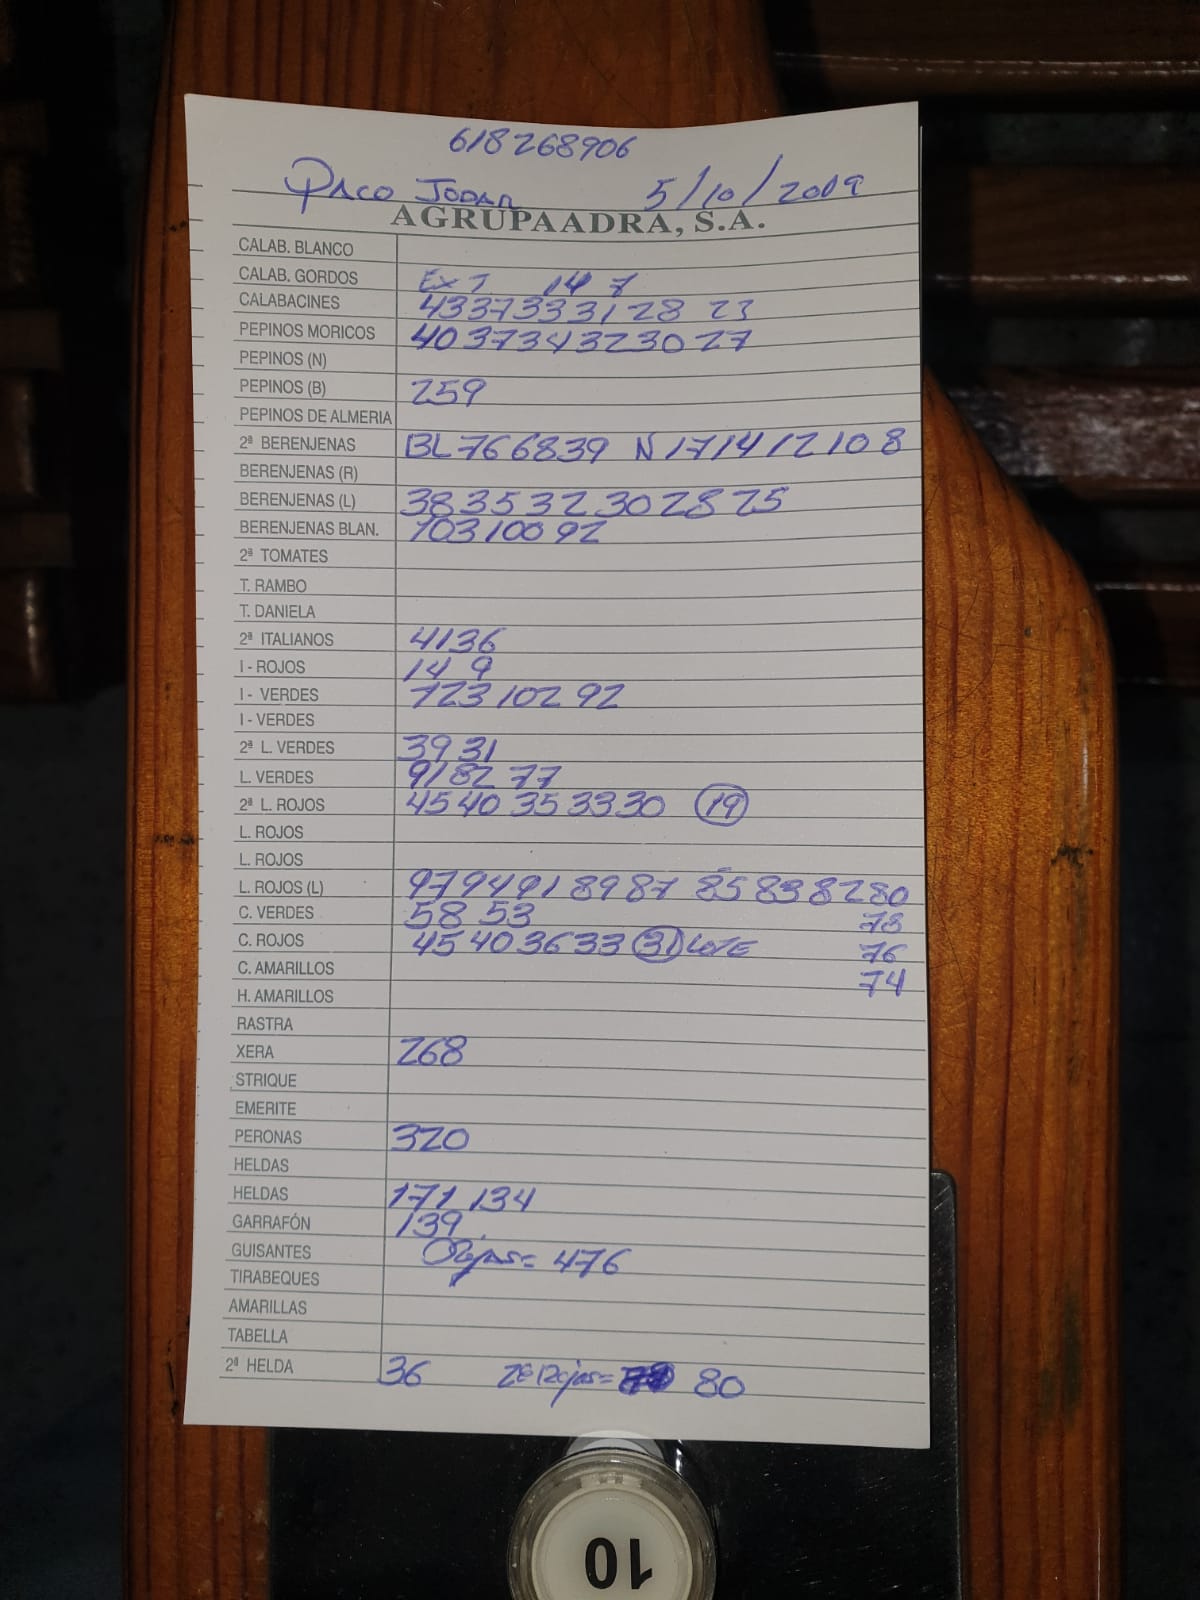 618268906
PACO JODAR 5/10/2019
AGRUPAADRA, S.A.
CALAB. BLANCO
CALAB. GORDOS EXT 14 7
CALABACINES 43 37 33 31 28 23
PEPINOS MORICOS 40 37 34 32 30 27
PEPINOS (N)
PEPINOS (B) 259
PEPINOS DE ALMERIA
2ª BERENJENAS BL 76 68 39 N 17 14 12 10 8
BERENJENAS (R)
BERENJENAS (L) 38 35 32 30 28 25
BERENJENAS BLAN. 103 100 92
2ª TOMATES
T. RAMBO
T. DANIELA
2ª ITALIANOS 41 36
I - ROJOS 14 9
I - VERDES 123 102 92
I - VERDES
2ª L. VERDES 39 31
L. VERDES 91 82 77
2ª L. ROJOS 45 40 35 33 30 19
L. ROJOS
L. ROJOS
L. ROJOS (L) 97 94 91 89 87 85 83 82 80
C. VERDES 58 53 78
C. ROJOS 45 40 36 33 31 LOTE 76
C. AMARILLOS 74
H. AMARILLOS
RASTRA
XERA 268
STRIQUE
EMERITE
PERONAS 320
HELDAS
HELDAS 171 134
GARRAFÓN 139
GUISANTES = 476
TIRABEQUES
AMARILLAS
TABELLA
2ª HELDA 36 = 80
10